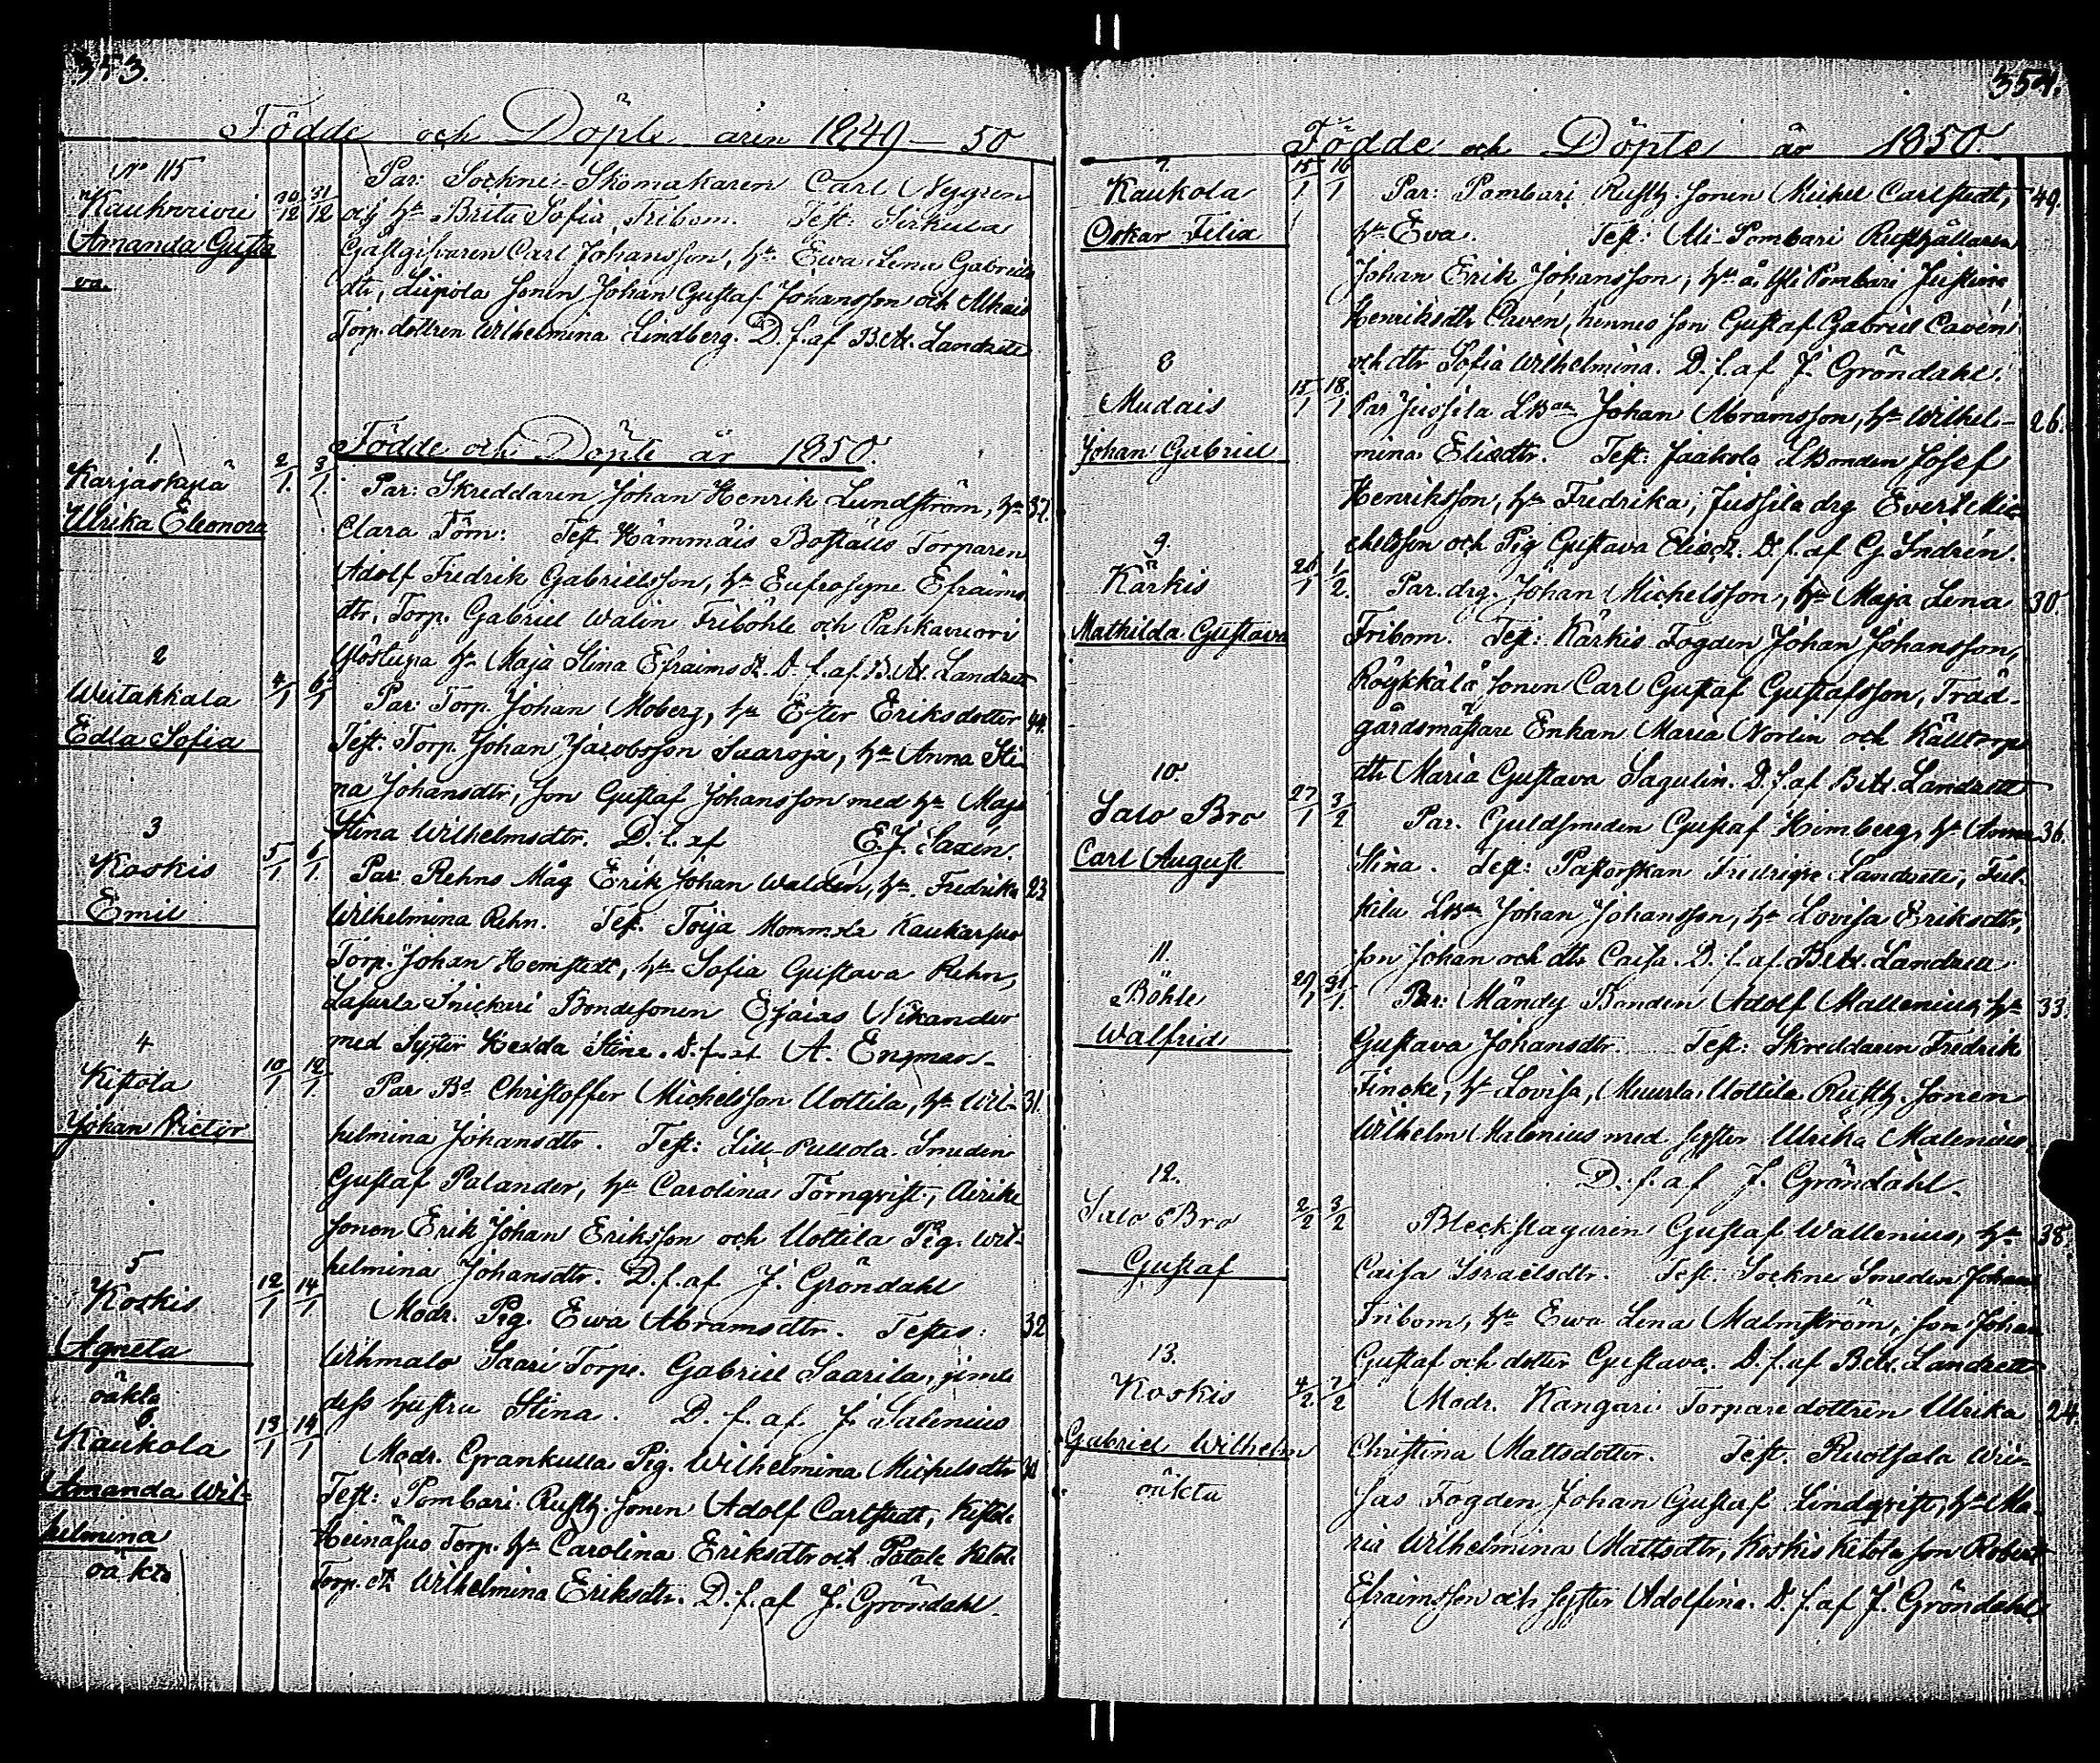 353.
Födde och Döpte åren 1849–50
No 115
Kaukvuori 30/12 31/12
Amanda Gusta
va.
Par: Sockne-Skomakaren Carl Nygren
och hu Brita Sofia Fribom. Test: Sirkula
Gästgifvaren Carl Johansson, hu Ewa Lena Gabriels
dtr, Liipola sonen Johan Gustaf Johansson och Alhais
Torp. dottren Wilhelmina Lindberg. D. f. af B.A. Landzett
Födde och Döpte år 1850.
1
Karjaskylä 2/1 3/1
Ulrika Eleonora
Par: Skreddaren Johan Henrik Lundström, hu 37.
Clara Töm: Test. Hämmäis Boställs Torparen
Adolf Fredrik Gabrielsson, hu Eufrosyne Efraims
dtr, Torp. Gabriel Walin Friböhle och Pahkavuori
hu Maja Stina Efraimsdt. D. f. af B.A. Landzett
2
Weitakkala 4/1 6/1
Edla Sofia
Par: Torp. Johan Moberg, hu Ester Eriksdotter 44.
Test. Torp. Johan Jacobsson Saaroja, hu Anna Sti
na Johansdtr, son Gustaf Johansson med hu Maja
Stina Wilhelmsdtr. D. f. af E. J. Saxén.
3
Koskis 5/1 6/1
Emil
Par: Rehns Måg Erik Johan Waldén, hu Fredrika 23
Wilhelmina Rehn. Test. Toija Mommola Kaukarsuo
Torp. Johan Hemstedt, hu Sofia Gustava Rehn,
Lasurla Snickari Bondesonen Esaias Nikander
med Syster Hexda Stina. D. f. af A. Engman
4
Kistola 10/1 12/1
Johan Victor
Par Bd Christoffer Michelsson Uottila, hu Wil- 31.
helmina Johansdtr. Test: Lill-Pullola Smeden
Gustaf Palander, hu Carolina Törnqvist, Airike
sonen Erik Johan Eriksson och Uottila Pig. Wil-
helmina Johansdtr. D. f. af J. Gröndahl
5
Koskis 12/1 14/1
Agneta
oäkta
Modr. Pig. Ewa Abramsdtr. Testes: 32
Wihmalo Saari Torp. Gabriel Saarila, jemte
dess hustru Stina. D. f. af J. Salenius
6.
Kaukola 13/1 14/1
Amanda Wil-
helmina
oäkta
Modr. Grankulla Pig. Wilhelmina Michelsdtr
Test: Pombari Rusth. sonen Adolf Carlstedt, Kistol
Heinäsuo Torp. hu Carolina Eriksdtr och Patale Ketol
Torp. dt Wilhelmina Eriksdtr. D. f. af J. Gröndahl.
354.
Födde och Döpte år 1850.
7.
Kaukola 15/1 16/1
Oskar Felix
Par: Pombari Rusth. sonen Mickel Carlstedt, 49.
hu Eva. Test: Ali-Pombari Rusthållaren
Johan Erik Johansson, hu å Yli Pombari Justina
Henriksdtr Cavén, hennes son Gustaf Gabriel Cavén
och dtr Sofia Wilhelmina. D. f. af J. Gröndahl.
8
Mudais 15/1 18/1
Johan Gabriel
Par Jussila LBon Johan Abramsson, hu Wilhel- 26.
mina Eliedtr. Test: Jaakola LBonden Josef
Henriksson, hu Fredrika; Jussila drg Evert Mi
chelsson och Pig Gustava Eliedt. D. f. af G. Indrén.
9.
Kärkis 26/1 1/2
Mathilda Gustava
Par. drg. Johan Michelsson, hu Maja Lena 30.
Fribom. Test: Kärkis Fogden Johan Johansson,
Röykkälä sonen Carl Gustaf Gustafsson, Träd-
gårdsmästare Enkan Maria Norlin och Källtorp
dtr Maria Gustava Sagulin. D. f. af B.A. Landzett
10.
Salo Bro 27/1 3/2
Carl August
Par. Guldsmeden Gustaf Himberg, hu Anna 36.
Stina. Test: Pastorskan Fredrique Landzett,
LBon Johan Johansson, hu Lovisa Eriksdtr,
son Johan och dtr Caisa. D. f. af B.A. Landzett
11.
Böhle 29/1 31/1
Walfrid
Par: Mändy Bonden Adolf Mallenius, hu 33.
Gustava Johansdtr. Test: Skreddaren Fredrik
Fincke, hu Lovisa, Muurla Uottila Rusth. sonen
Wilhelm Malenius med syster Ulrika Malenius,
D. f. af J. Gröndahl.
12.
Salo Bro 2/2 3/2
Gustaf
Bleckslagaren Gustaf Wallenius, hu 38.
Caisa Israelsdtr. Test: Sockne Smeden Johan
Fribom, hu Ewa Lena Malmström, son Johan
Gustaf och dotter Gustava. D. f. af B.A. Landzett
13.
Koskis 4/2 7/2
Gabriel Wilhelm
oäkta
Modr. Kangari Torpare dottren Ulrika 24.
Christina Mattsdotter. Test. Ruotsala Wii-
sas Fogden Johan Gustaf Lindqvist, hu Ma-
ria Wilhelmina Mattsdtr, Koskis Ketola son Robert
Efraimsson och syster Adolfina. D. f. af J. Gröndahl